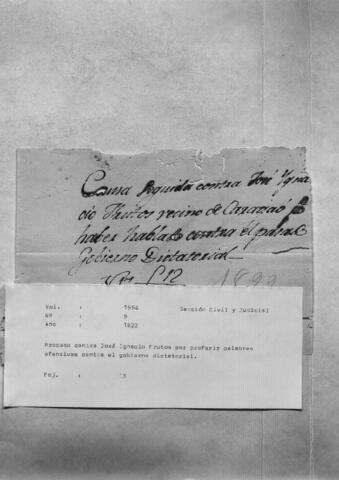 Causa seguida contra José Ygna
cio Frutos vecino de
haber hablado contra el
Gobierno Dictatorial
Vol. : 1694 Sección Civil y Judicial
Nº : 9
Año : 1822
Proceso contra José Ignacio Frutos por proferir palabras
ofensivas contra el gobierno dictatorial.
Foj. : 13